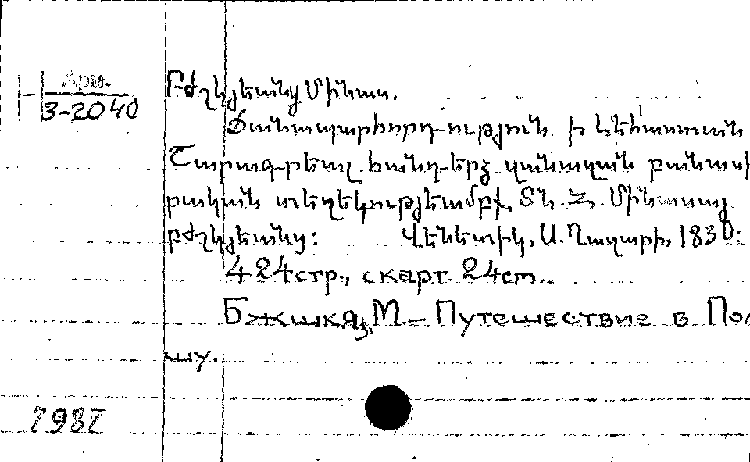 Арм.
3-2040
Բժշկյեանց Մինաս.
Ճանապարհորդություն ի Լեհաստան
Շարագրեալ հանդերձ զանազան բանասի
րական տեղեկությեամբք, Տն. Հ. Մինասայ
բժշկյեանց: Վենետիկ, Ս. Ղազարի, 1830:
424стр., с карт. 24ст.
Бжшкяз, М – Путешествие в Поль
шу.
7987